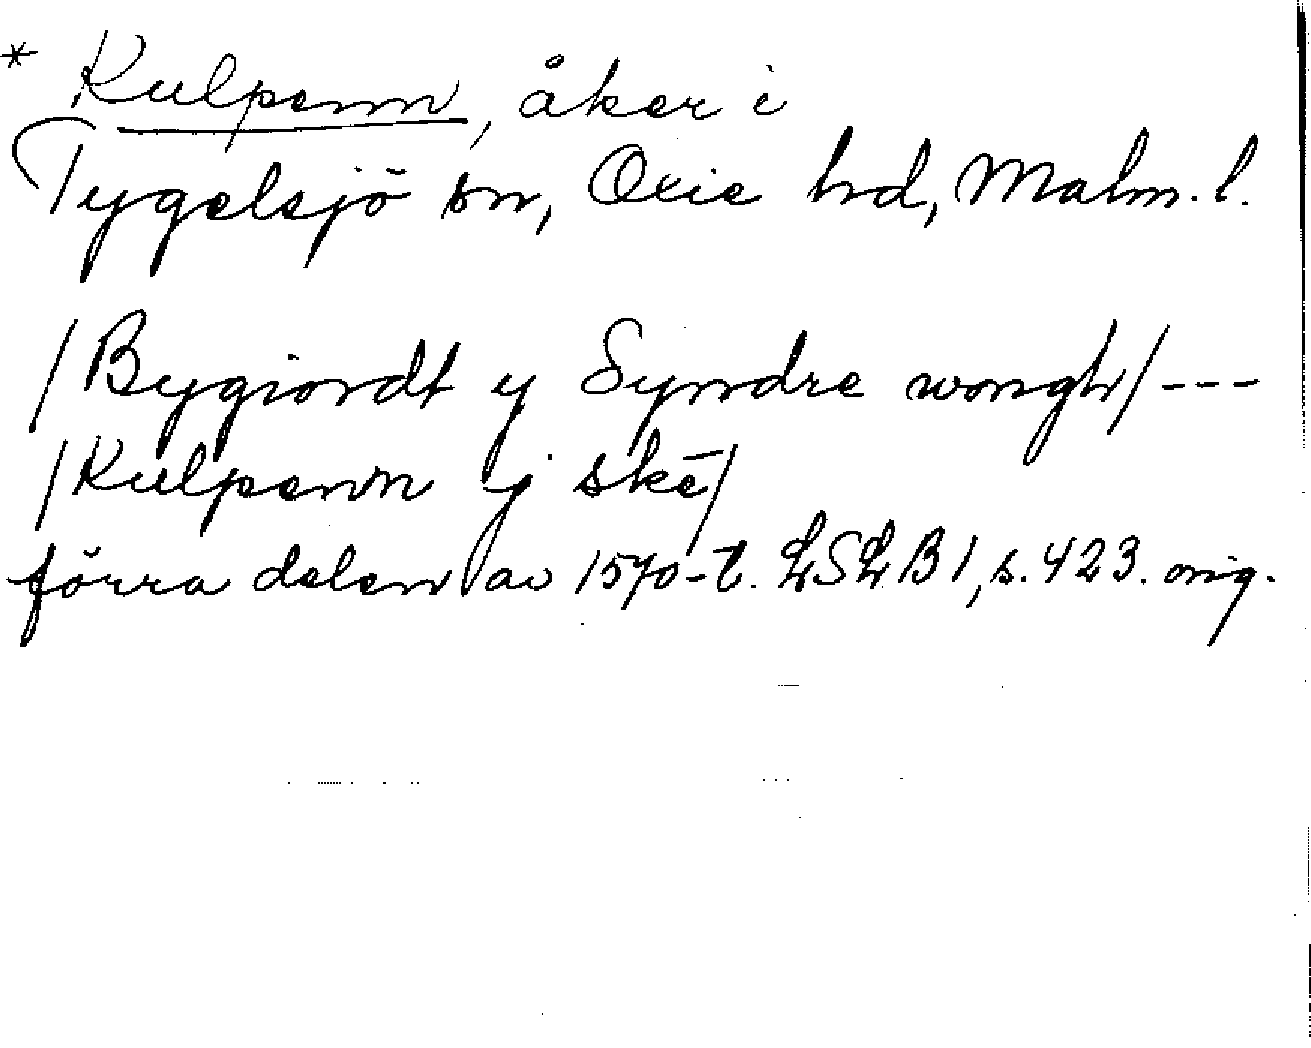 * Kulpenn, åker i
Tygelsjö sn, Oxie hrd, Malm. l.
/Bygiordt y Syndre wongh/ ---
/Kulpenn ij skē/
förra delen av 1570-t. LSLB 1, s. 423. orig.